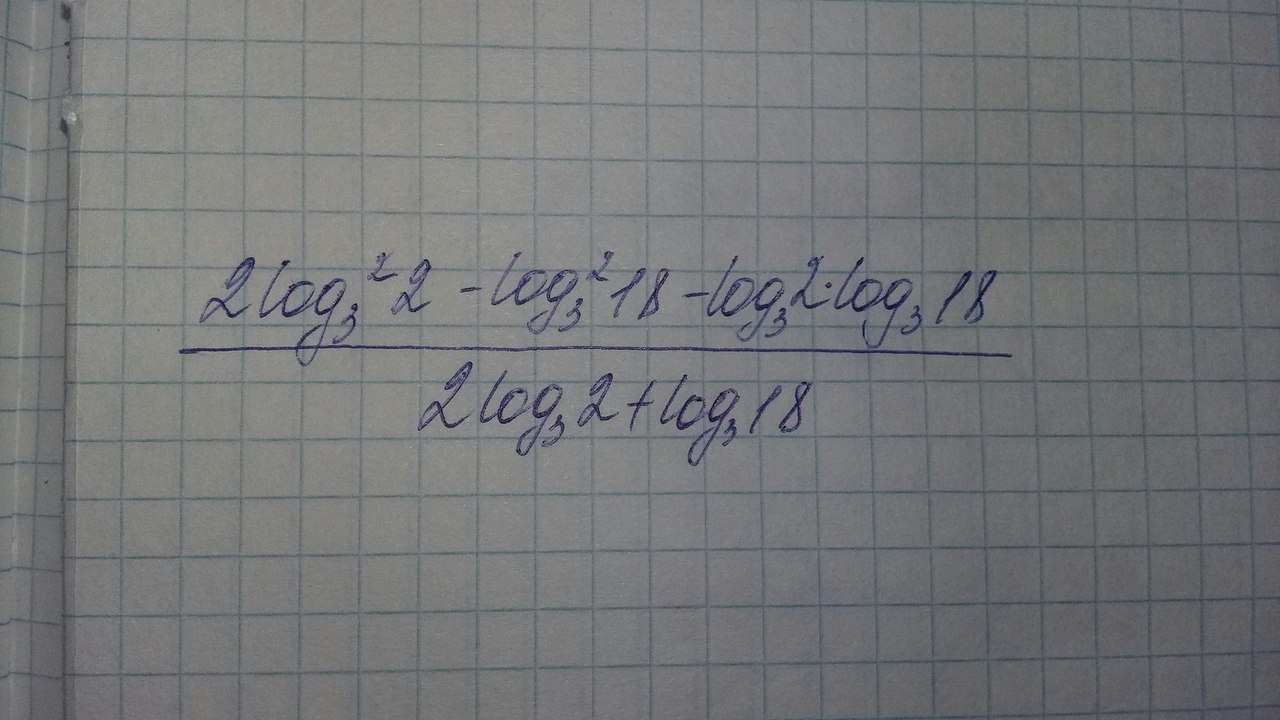 2log₃²2 - log₃²18 - log₃2·log₃18
2log₃2 + log₃18